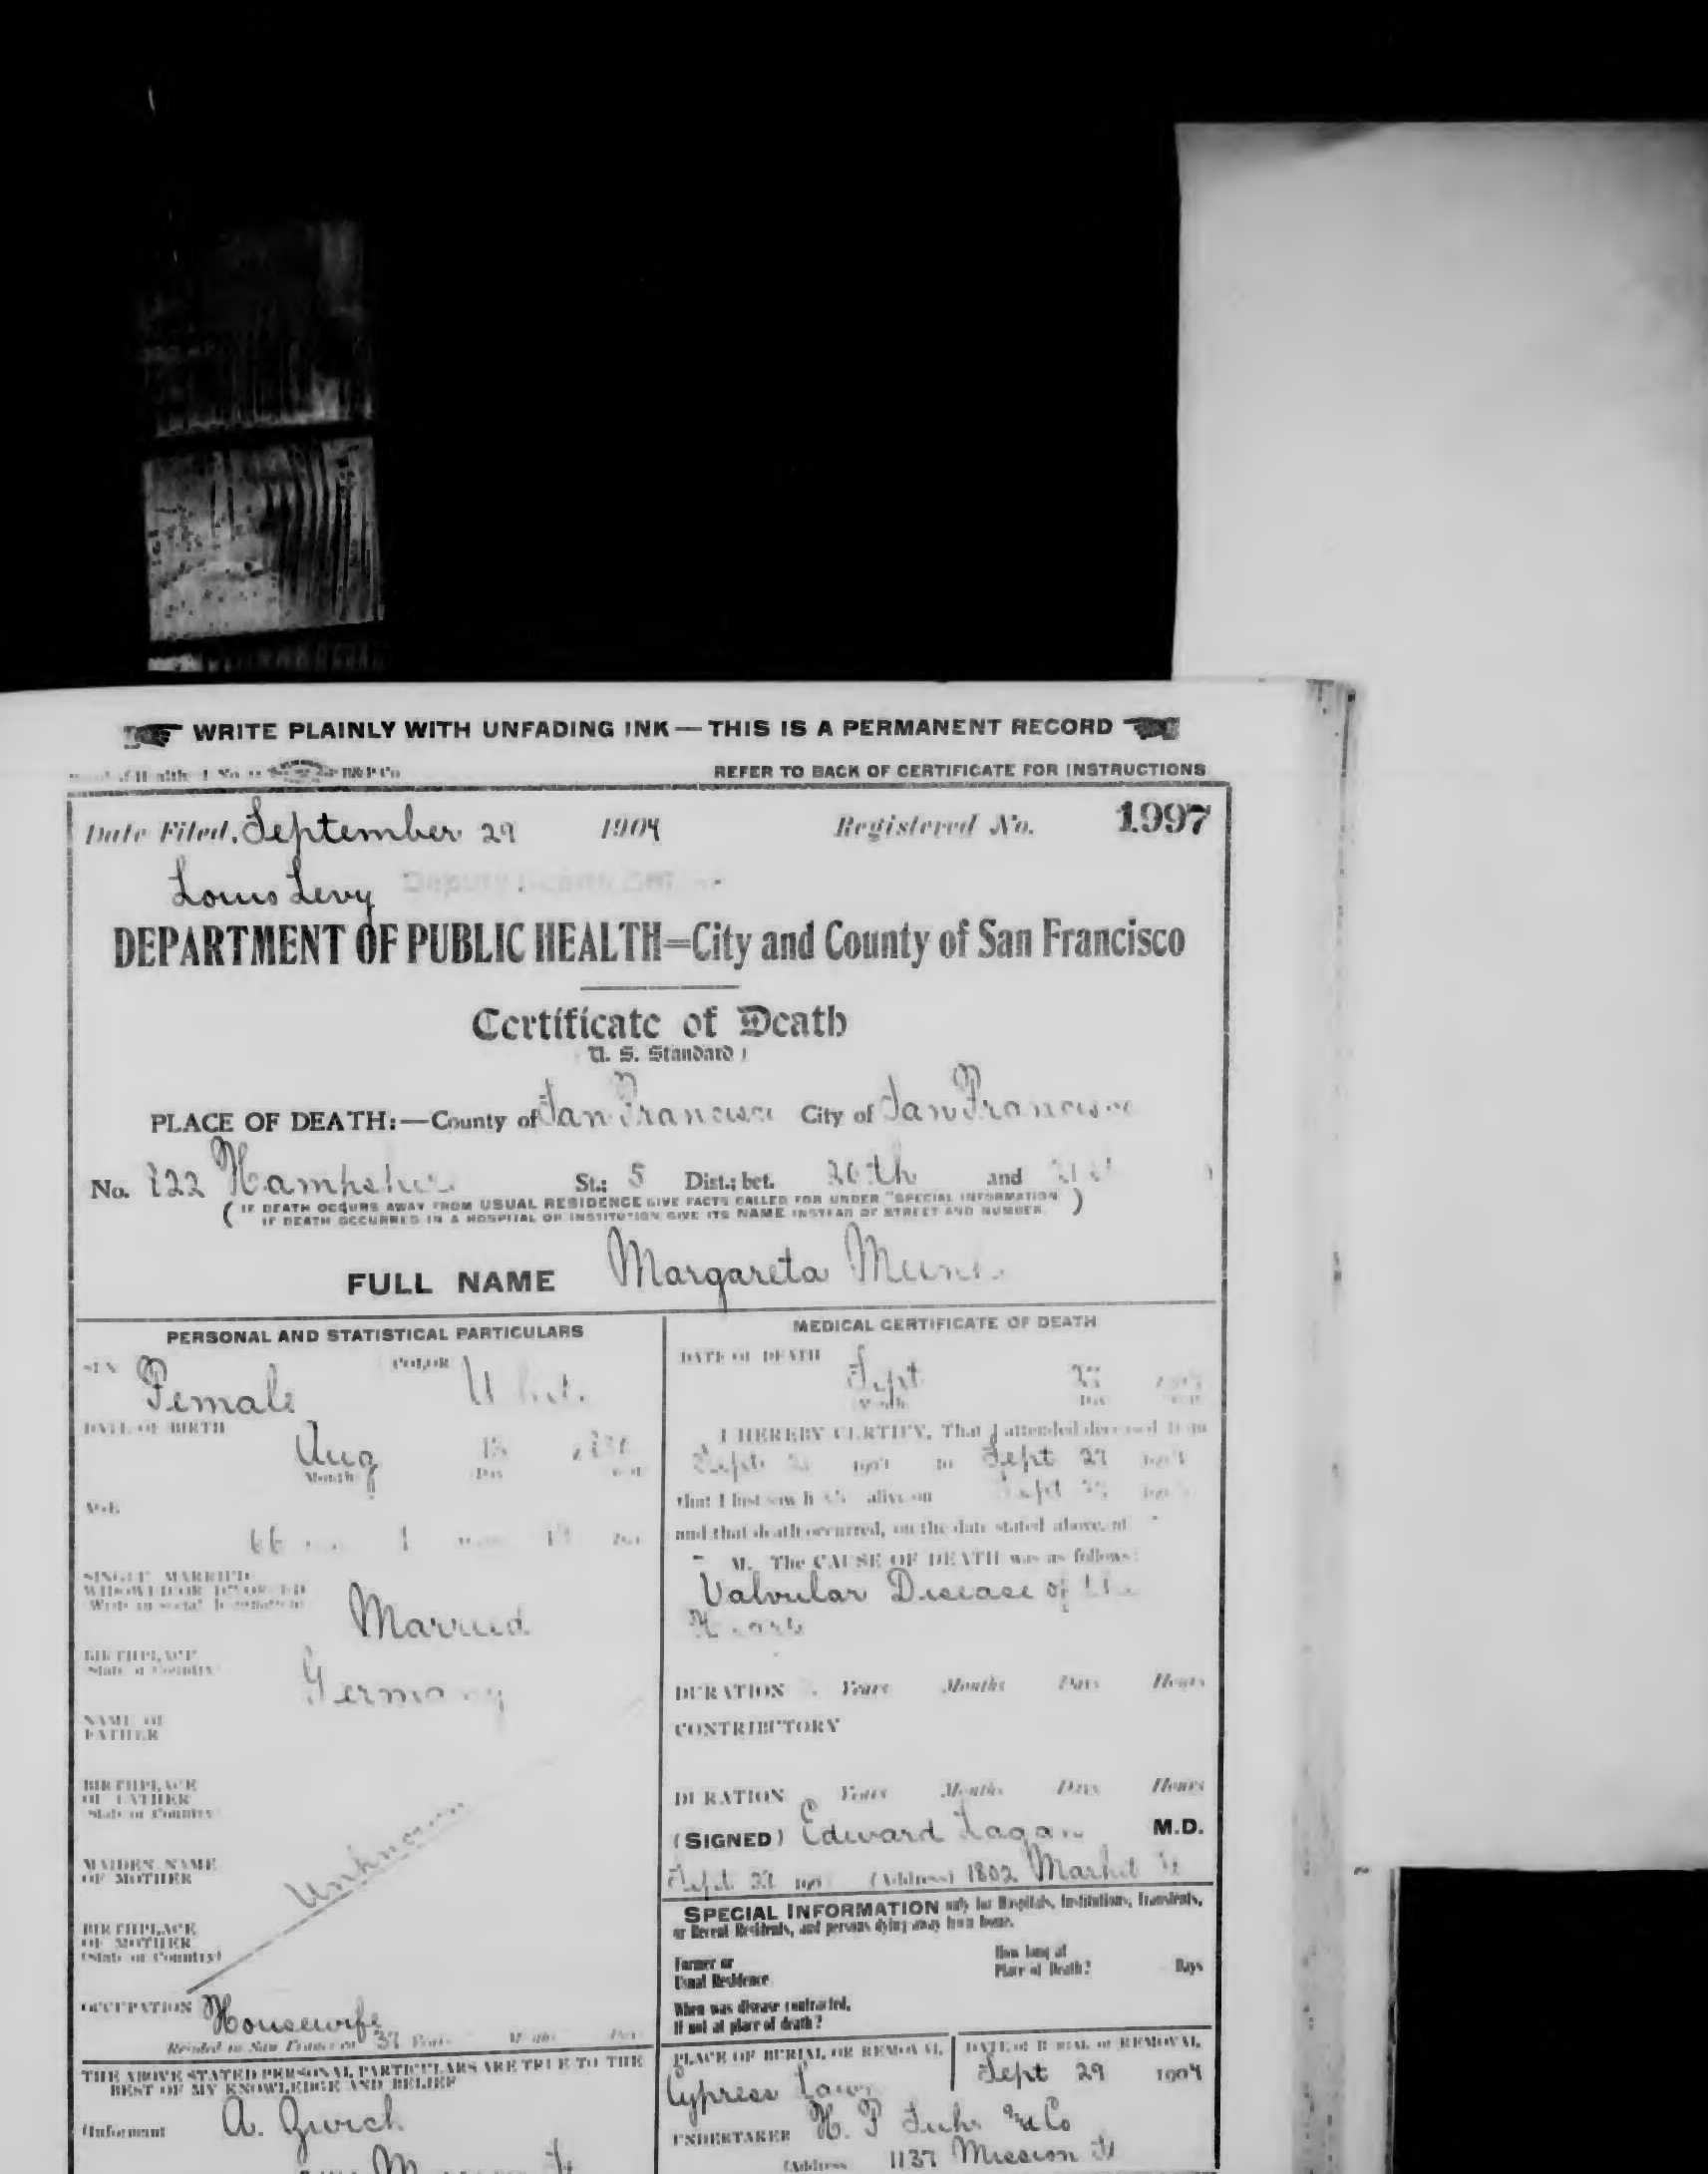 WRITE PLAINLY WITH UNFADING INK — THIS IS A PERMANENT RECORD
of Health
REFER TO BACK OF CERTIFICATE FOR INSTRUCTIONS
Date Filed, September 29 1904 Registered No. 1997
Louis Levy Deputy Health
DEPARTMENT OF PUBLIC HEALTH=City and County of San Francisco
Certificate of Death
(U. S. Standard)
PLACE OF DEATH:—County of San Francisco City of San Francisco
No. 822 Hampshire St.; 5 Dist.; bet. 20th and 21st
(IF DEATH OCCURS AWAY FROM USUAL RESIDENCE GIVE FACTS CALLED FOR UNDER "SPECIAL INFORMATION"
IF DEATH OCCURRED IN A HOSPITAL OR INSTITUTION GIVE ITS NAME INSTEAD OF STREET AND NUMBER.)
FULL NAME Margareta
PERSONAL AND STATISTICAL PARTICULARS
SEX Female COLOR White
DATE OF BIRTH
Aug 15
Month Day Year
AGE
66 1
SINGLE MARRIED
WIDOWED OR DIVORCED
Married
BIRTHPLACE
State or Country
Germany
NAME OF
FATHER
BIRTHPLACE
OF FATHER
State or Country
Unknown
MAIDEN NAME
OF MOTHER
BIRTHPLACE
OF MOTHER
(State or Country)
OCCUPATION Housewife
Resided in San Francisco 37 Years Months Days
THE ABOVE STATED PERSONAL PARTICULARS ARE TRUE TO THE
BEST OF MY KNOWLEDGE AND BELIEF
(Informant A. Zwick
MEDICAL CERTIFICATE OF DEATH
DATE OF DEATH
Sept 27
Month Day Year
I HEREBY CERTIFY, That I attended deceased from
Sept 1904 to Sept 27 1904
that I last saw her alive on Sept 27 1904
and that death occurred, on the date stated above, at
M. The CAUSE OF DEATH was as follows:
Valvular Disease of the
Heart
DURATION Years Months Days Hours
CONTRIBUTORY
DURATION Years Months Days Hours
(SIGNED) Edward Lagan M.D.
Sept (Address) 1802 Market St
SPECIAL INFORMATION only for Hospitals, Institutions, Transients,
or Recent Residents, and persons dying away from home.
Former or
Usual Residence
How long at
Place of Death? Days
When was disease contracted,
If not at place of death?
PLACE OF BURIAL OR REMOVAL
Cypress Lawn
DATE of BURIAL or REMOVAL
Sept 29 1904
UNDERTAKER H. P. & Co
(Address 1137 Mission St